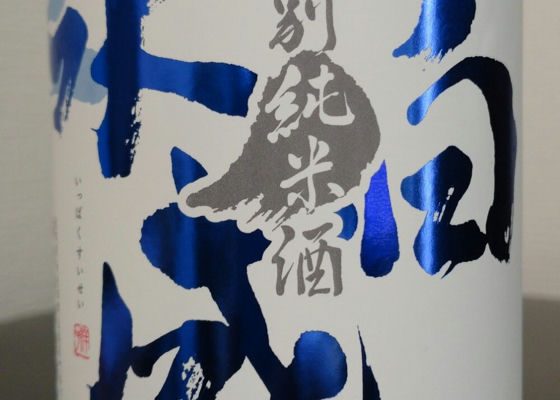 白
別純米酒
水
成
いっぱくすいせい